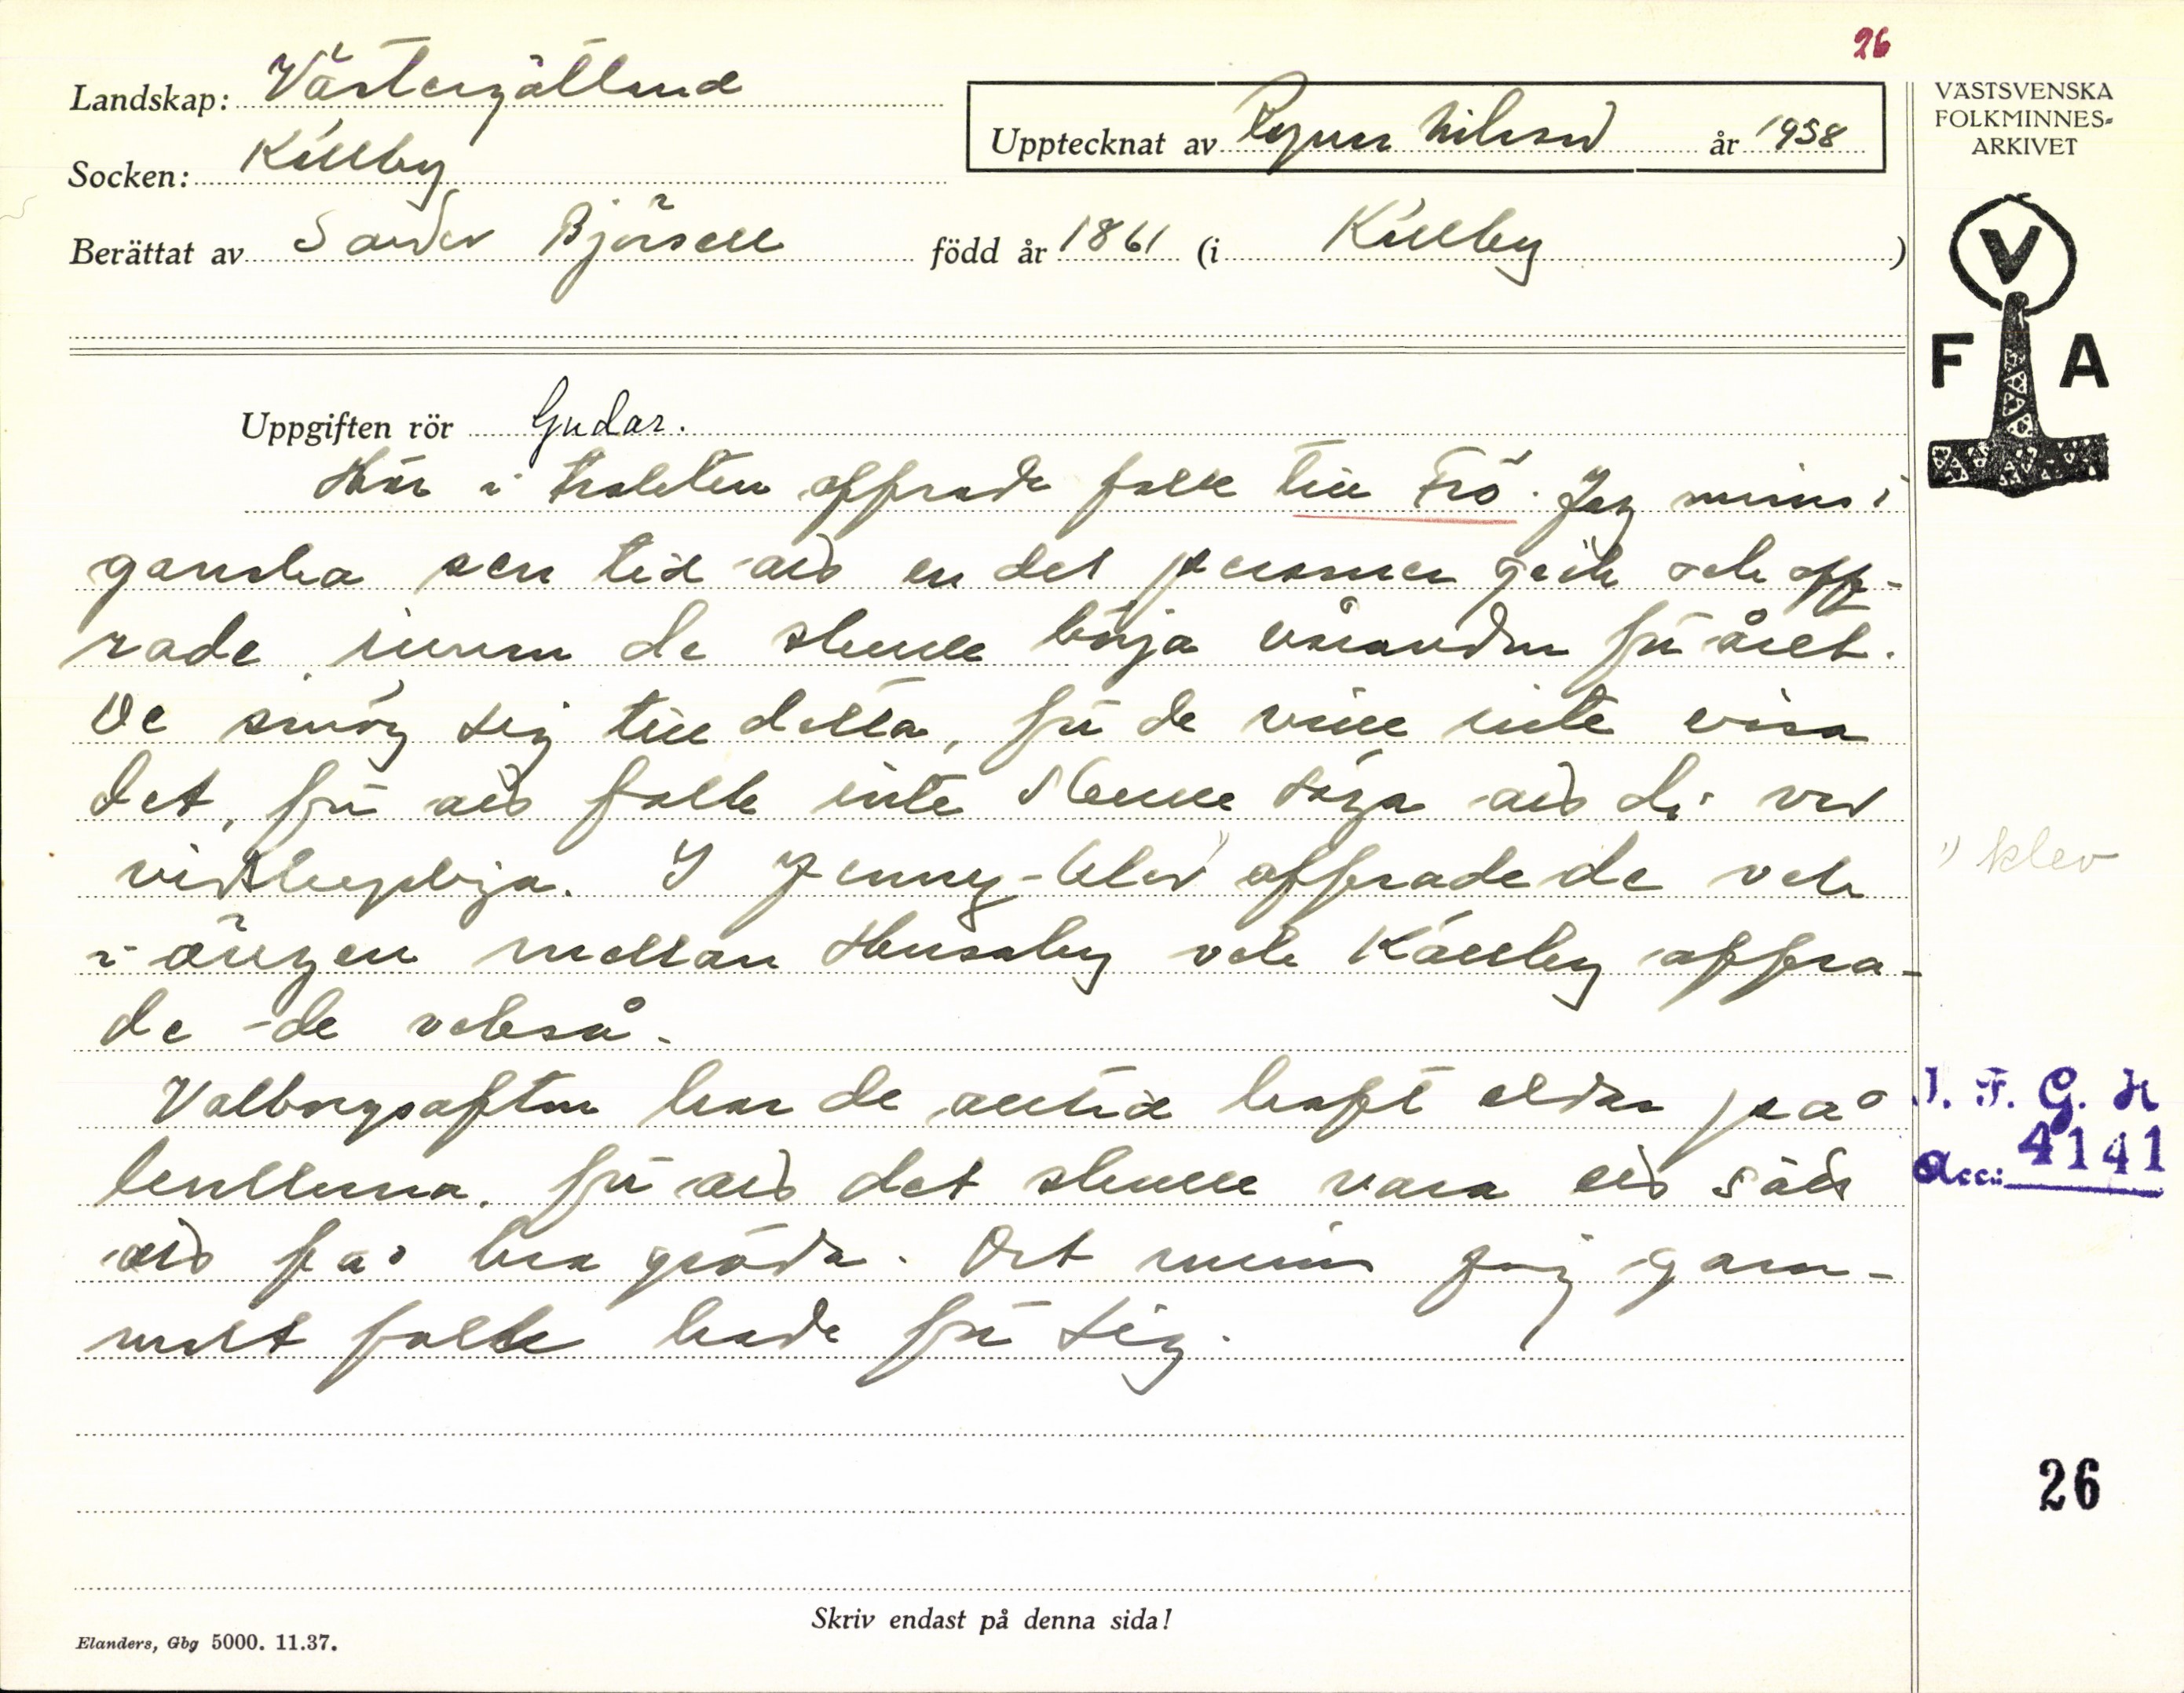 26
Landskap: Västergötland
Socken: Källby
Upptecknat av Ragnar Nilsson år 1938
Berättat av Sander Björsell född år 1861 (i Källby )
VÄSTSVENSKA
FOLKMINNES-
ARKIVET
V
F A
Uppgiften rör Gudar.
Här i trakten offrade folk till Frö. Jag minns i
ganska sen tid att en del personer gick och off-
rade innan de skulle börja våranden för året.
De smög sig till detta, för de ville inte visa
det, för att folk inte skulle säga att de var
vidskepliga. I Jenny-klev offrade de och
i ängen mellan Husaby och Källby offra-
de de också.
" klev
Valborgsafton har de alltid haft eldar på
kullarna, för att det skulle vara ett sätt
att få bra gröda. Det minns jag gam-
malt folk hade för sig.
I. F. G. H
Acc: 4141
26
Skriv endast på denna sida!
Elanders, Gbg 5000. 11.37.